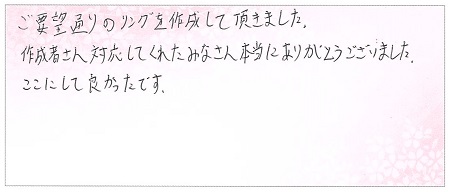 ご要望通りのリングを作成して頂きました。
作成者さん対応してくれたみなさん本当にありがとうございました。
ここにして良かったです。